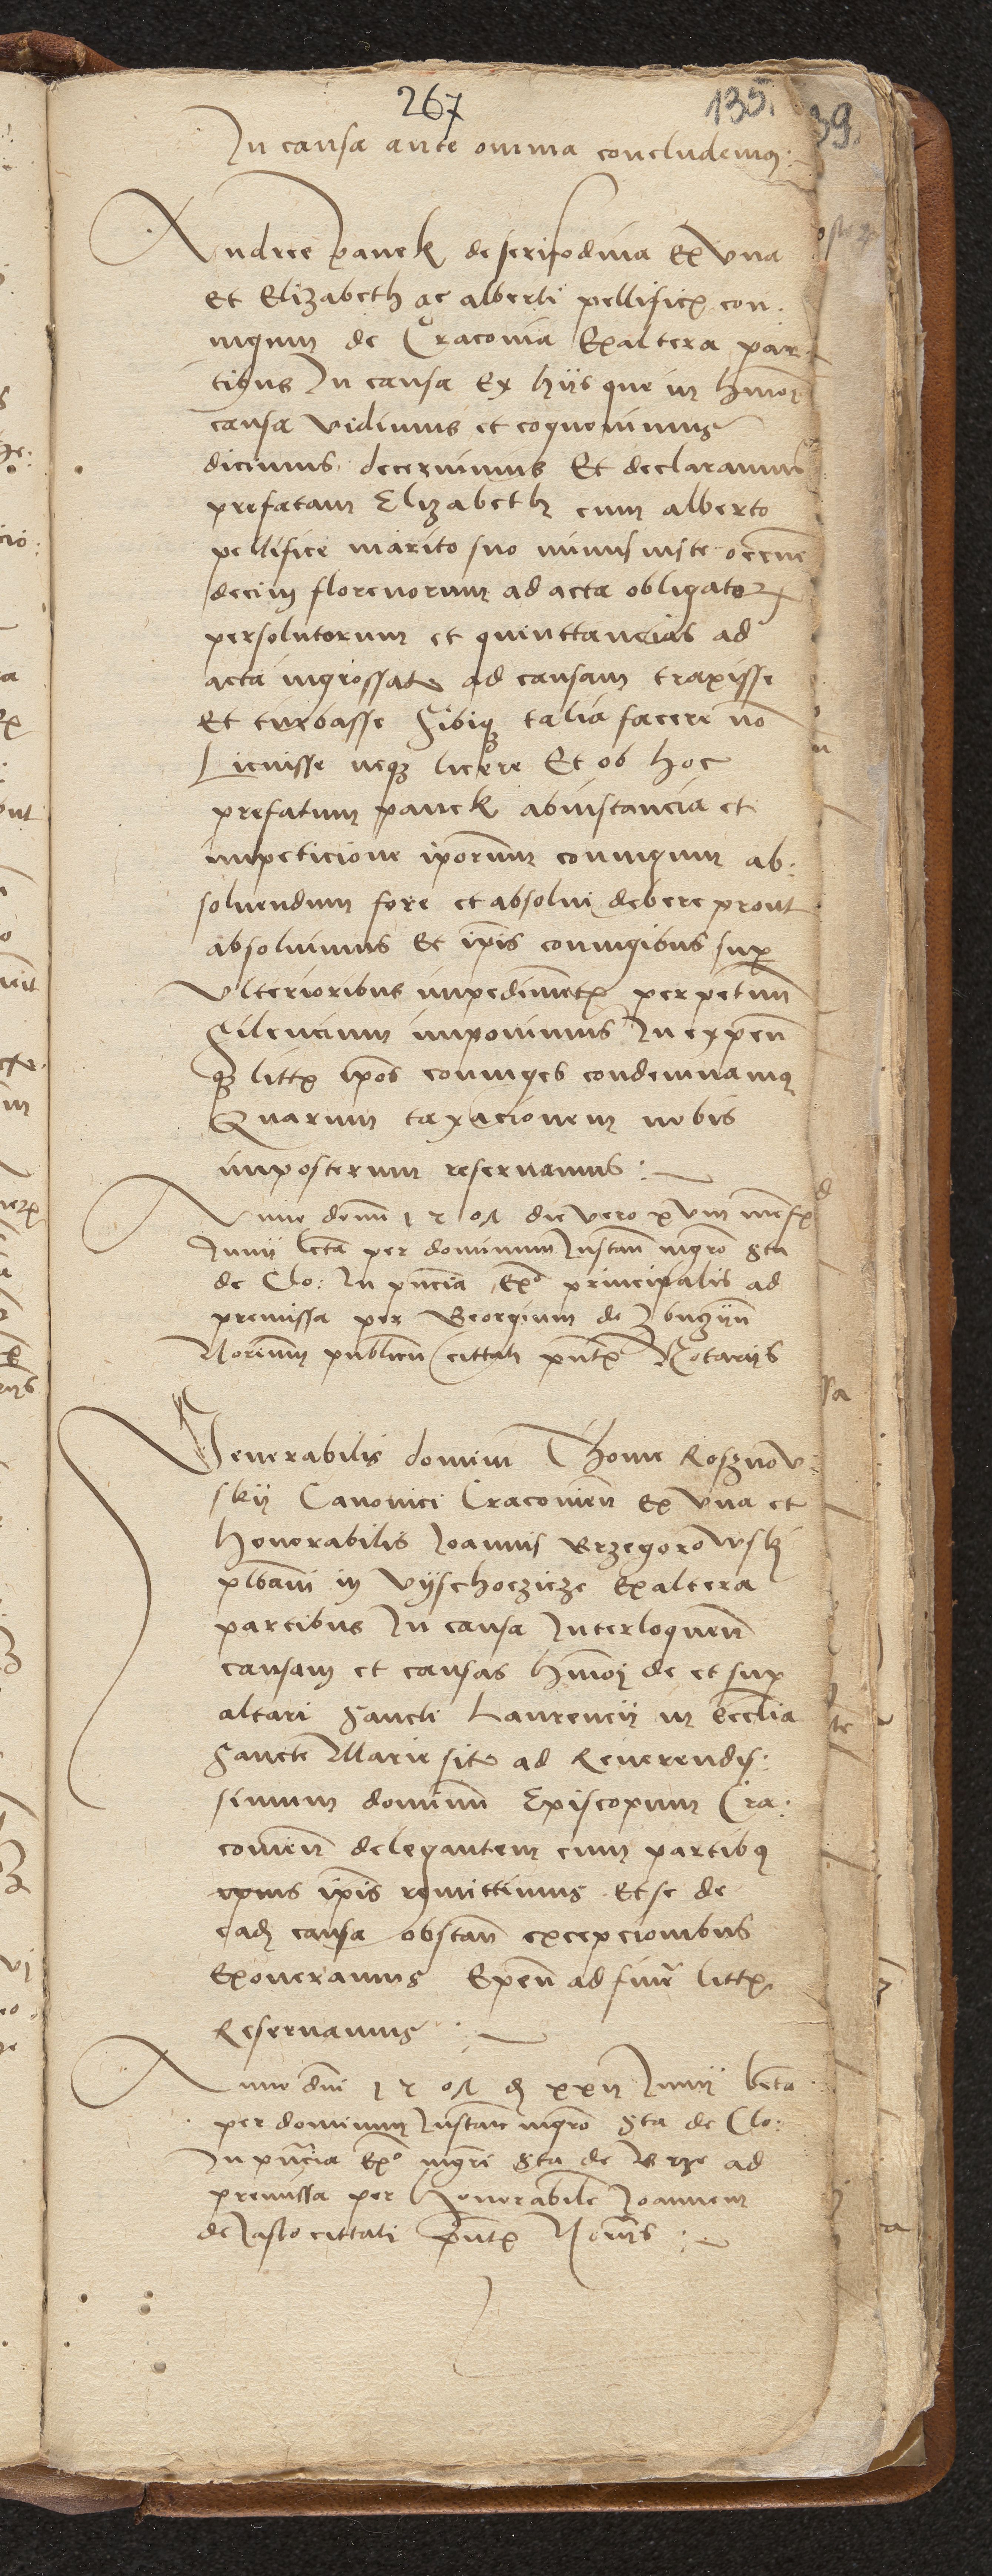 267 135. 39.
In causa ante omnia concludemus
Andree panek de serifodina Ex Vna
Et Elizabeth ac alberti pellificis con-
iugum de Cracovia Exaltera par-
tibus In causa Ex hijs que in hmoi
causa vidimus et cognovimus
dicimus decernimus Et declaramus
prefatam Elizabeth cum alberto
pellifice marito suo minus iuste
decim florenorum ad acta obligatorum
persolutorum et quinttancias ad
acta ingrossate ad causam traxisse
Et turbasse sibique talia facere no
Licuisse neque licere Et ob hoc
prefatum panek abinstancia et
impeticione iporum coniugum ab:
soluendum fore et absolui debere prout
absoluimus Et ipis coniugibus sup
Vlterioribus impedimentis perpetuum
silencium imponimus In expen
que littis ipos coniuges condemnamus
Quarum taxacionem nobis
imposterum reservamus:
Anno domini die vero xviii mensis
Junij lecta per dominum Instan mgro Sta
de Clo: In pncia Exo principalis ad
premissa per Georgium de
Norium publicum cittati pntis Notarijs
Venerabilis domini Thome Rosznow:
skij Canonici Cracovien Ex Vna et
Honorabilis Joannis Brzegorowskj
plbani in Vijschoczicze Exaltera
partibus In causa Interloquen
causam et causas hmoi de et sup
altari sancti Laurencij in Ecclia
sancte Marie site ad Reverendis:
simum dominum Episcopum Cra:
covien delegantem cum partibus
ipis remittimus Et se de
eadem causa obstan excepcionibus
Exoneramus Epen ad finem littis
Reservamus:
Anno dni xxii Junij lecta
per dominum Instan mgro Sta de Clo:
In pncia Exo mgri Sta de Brze ad
premissa per Honorabilem Joannem
de Jaslo cittati pntis Norijs: